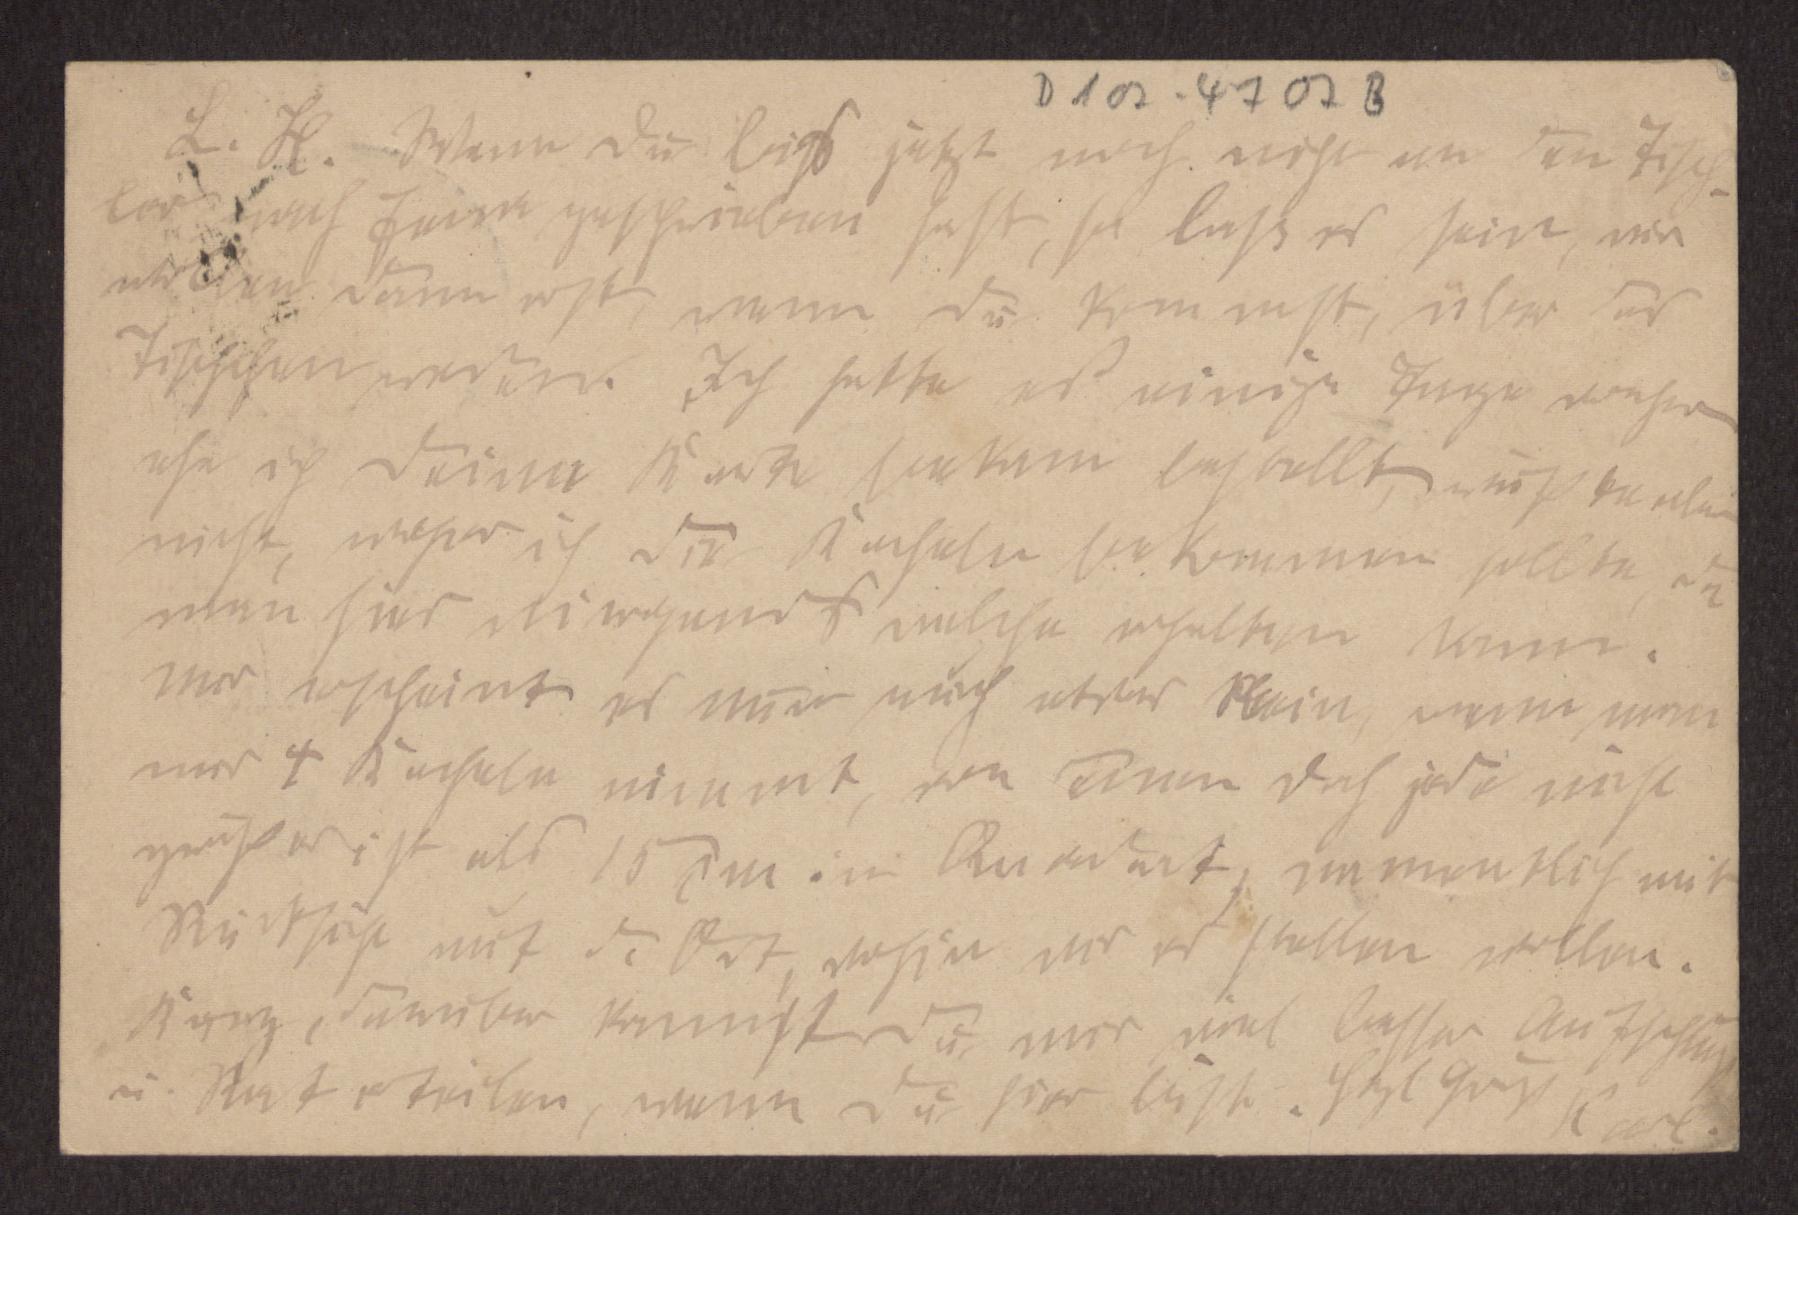 D 107-4707 B
L. H. Wenn Du bis jetzt noch nicht an den Tisch-
ler nach geschrieben hast, so laß es sein, wir
werden dann erst, wenn Du kommst, über das
Tischchen reden. Ich hatte es einige Tage vorher
ehe ich Deine Karte bekam bestellt, wußte aber
nicht, woher ich die Kacheln bekommen sollte, da
man hier nirgends welche erhalten kann.
Mir erscheint es nur auch etwas klein, wenn man
nur 4 Kacheln nimmt, von denen doch jede nicht
größer ist als 15 cm im Quadrat, namentlich mit
Rücksicht auf d. Ort, wohin wir es stellen wollen.
Kurz, darüber kannst Du mir viel besser Aufschluß
u. Rat erteilen, wenn Du hier bist. Hzl Gruß Karl.